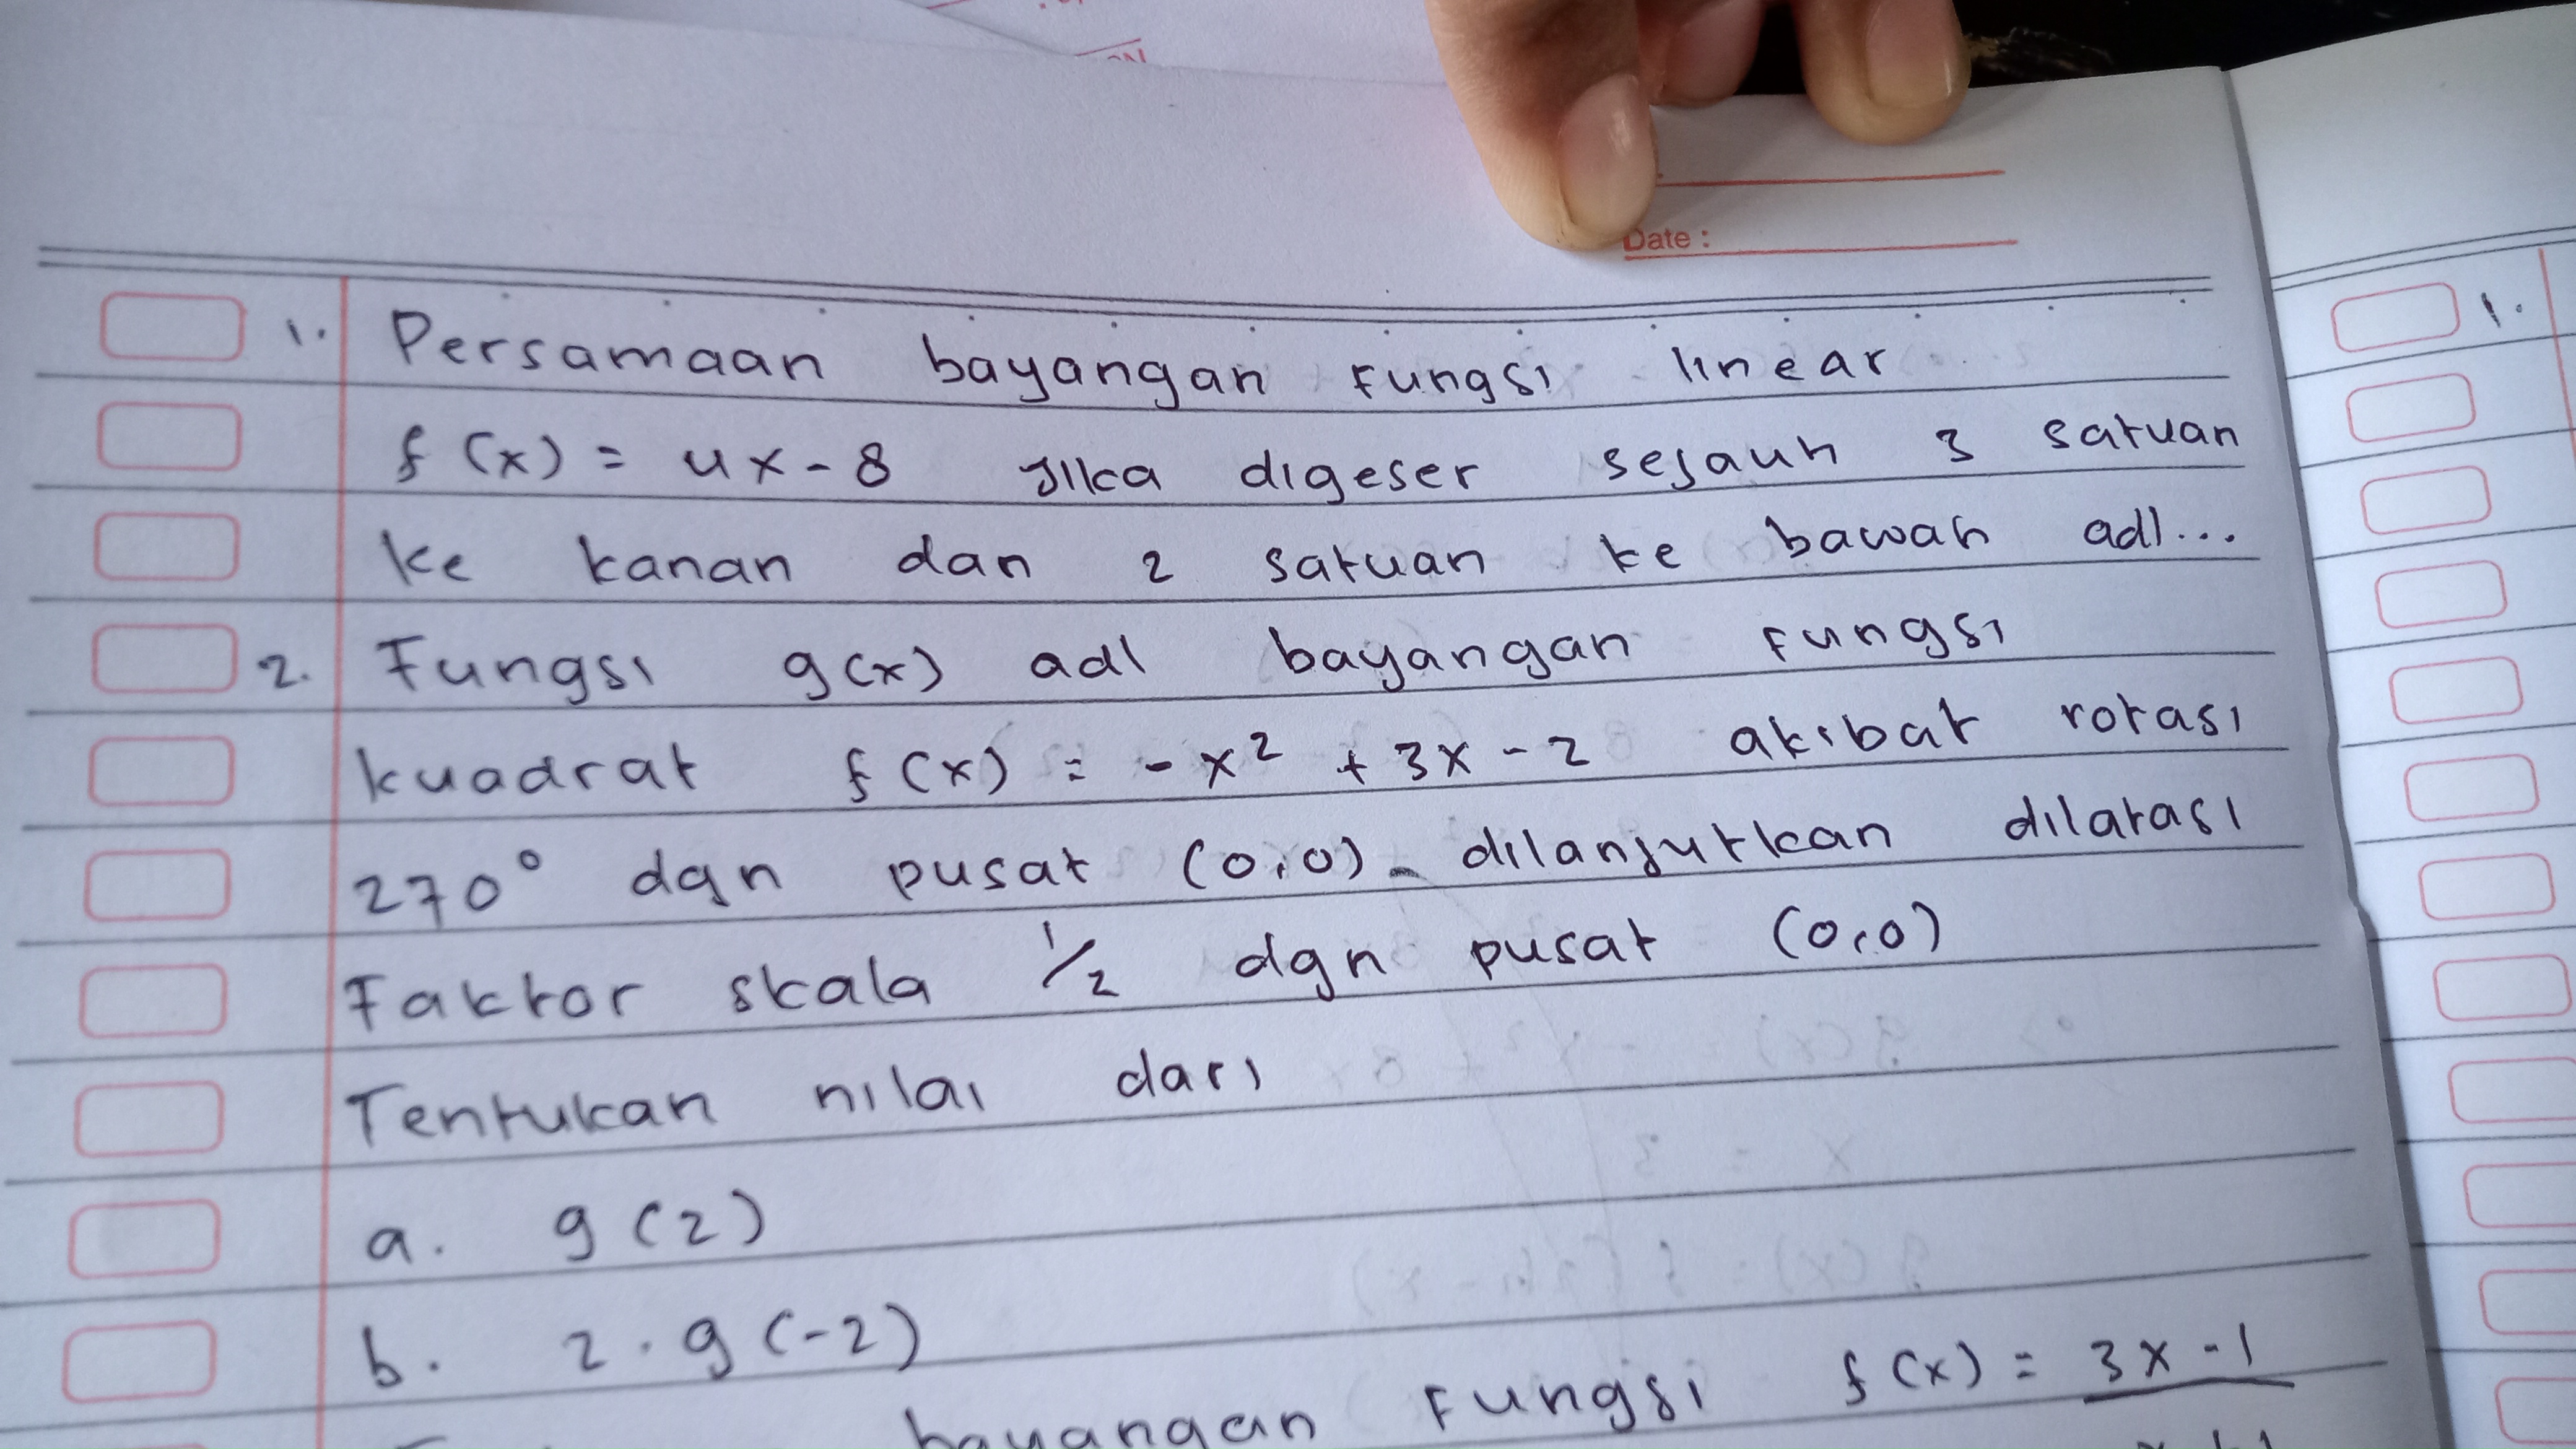 Date :
1. Persamaan bayangan fungsi linear
f(x) = 4x - 8 Jika digeser sejauh 3 satuan
ke kanan dan 2 satuan ke bawah adl...
2. Fungsi g(x) adl bayangan fungsi
kuadrat f(x) = -x² + 3x - 2 akibat rotasi
270° dgn pusat (0,0) dilanjutkan dilatasi
Faktor skala 1/2 dgn pusat (0,0)
Tentukan nilai dari
a. g(2)
b. 2 . g(-2)
bayangan Fungsi f(x) = 3x - 1
1.